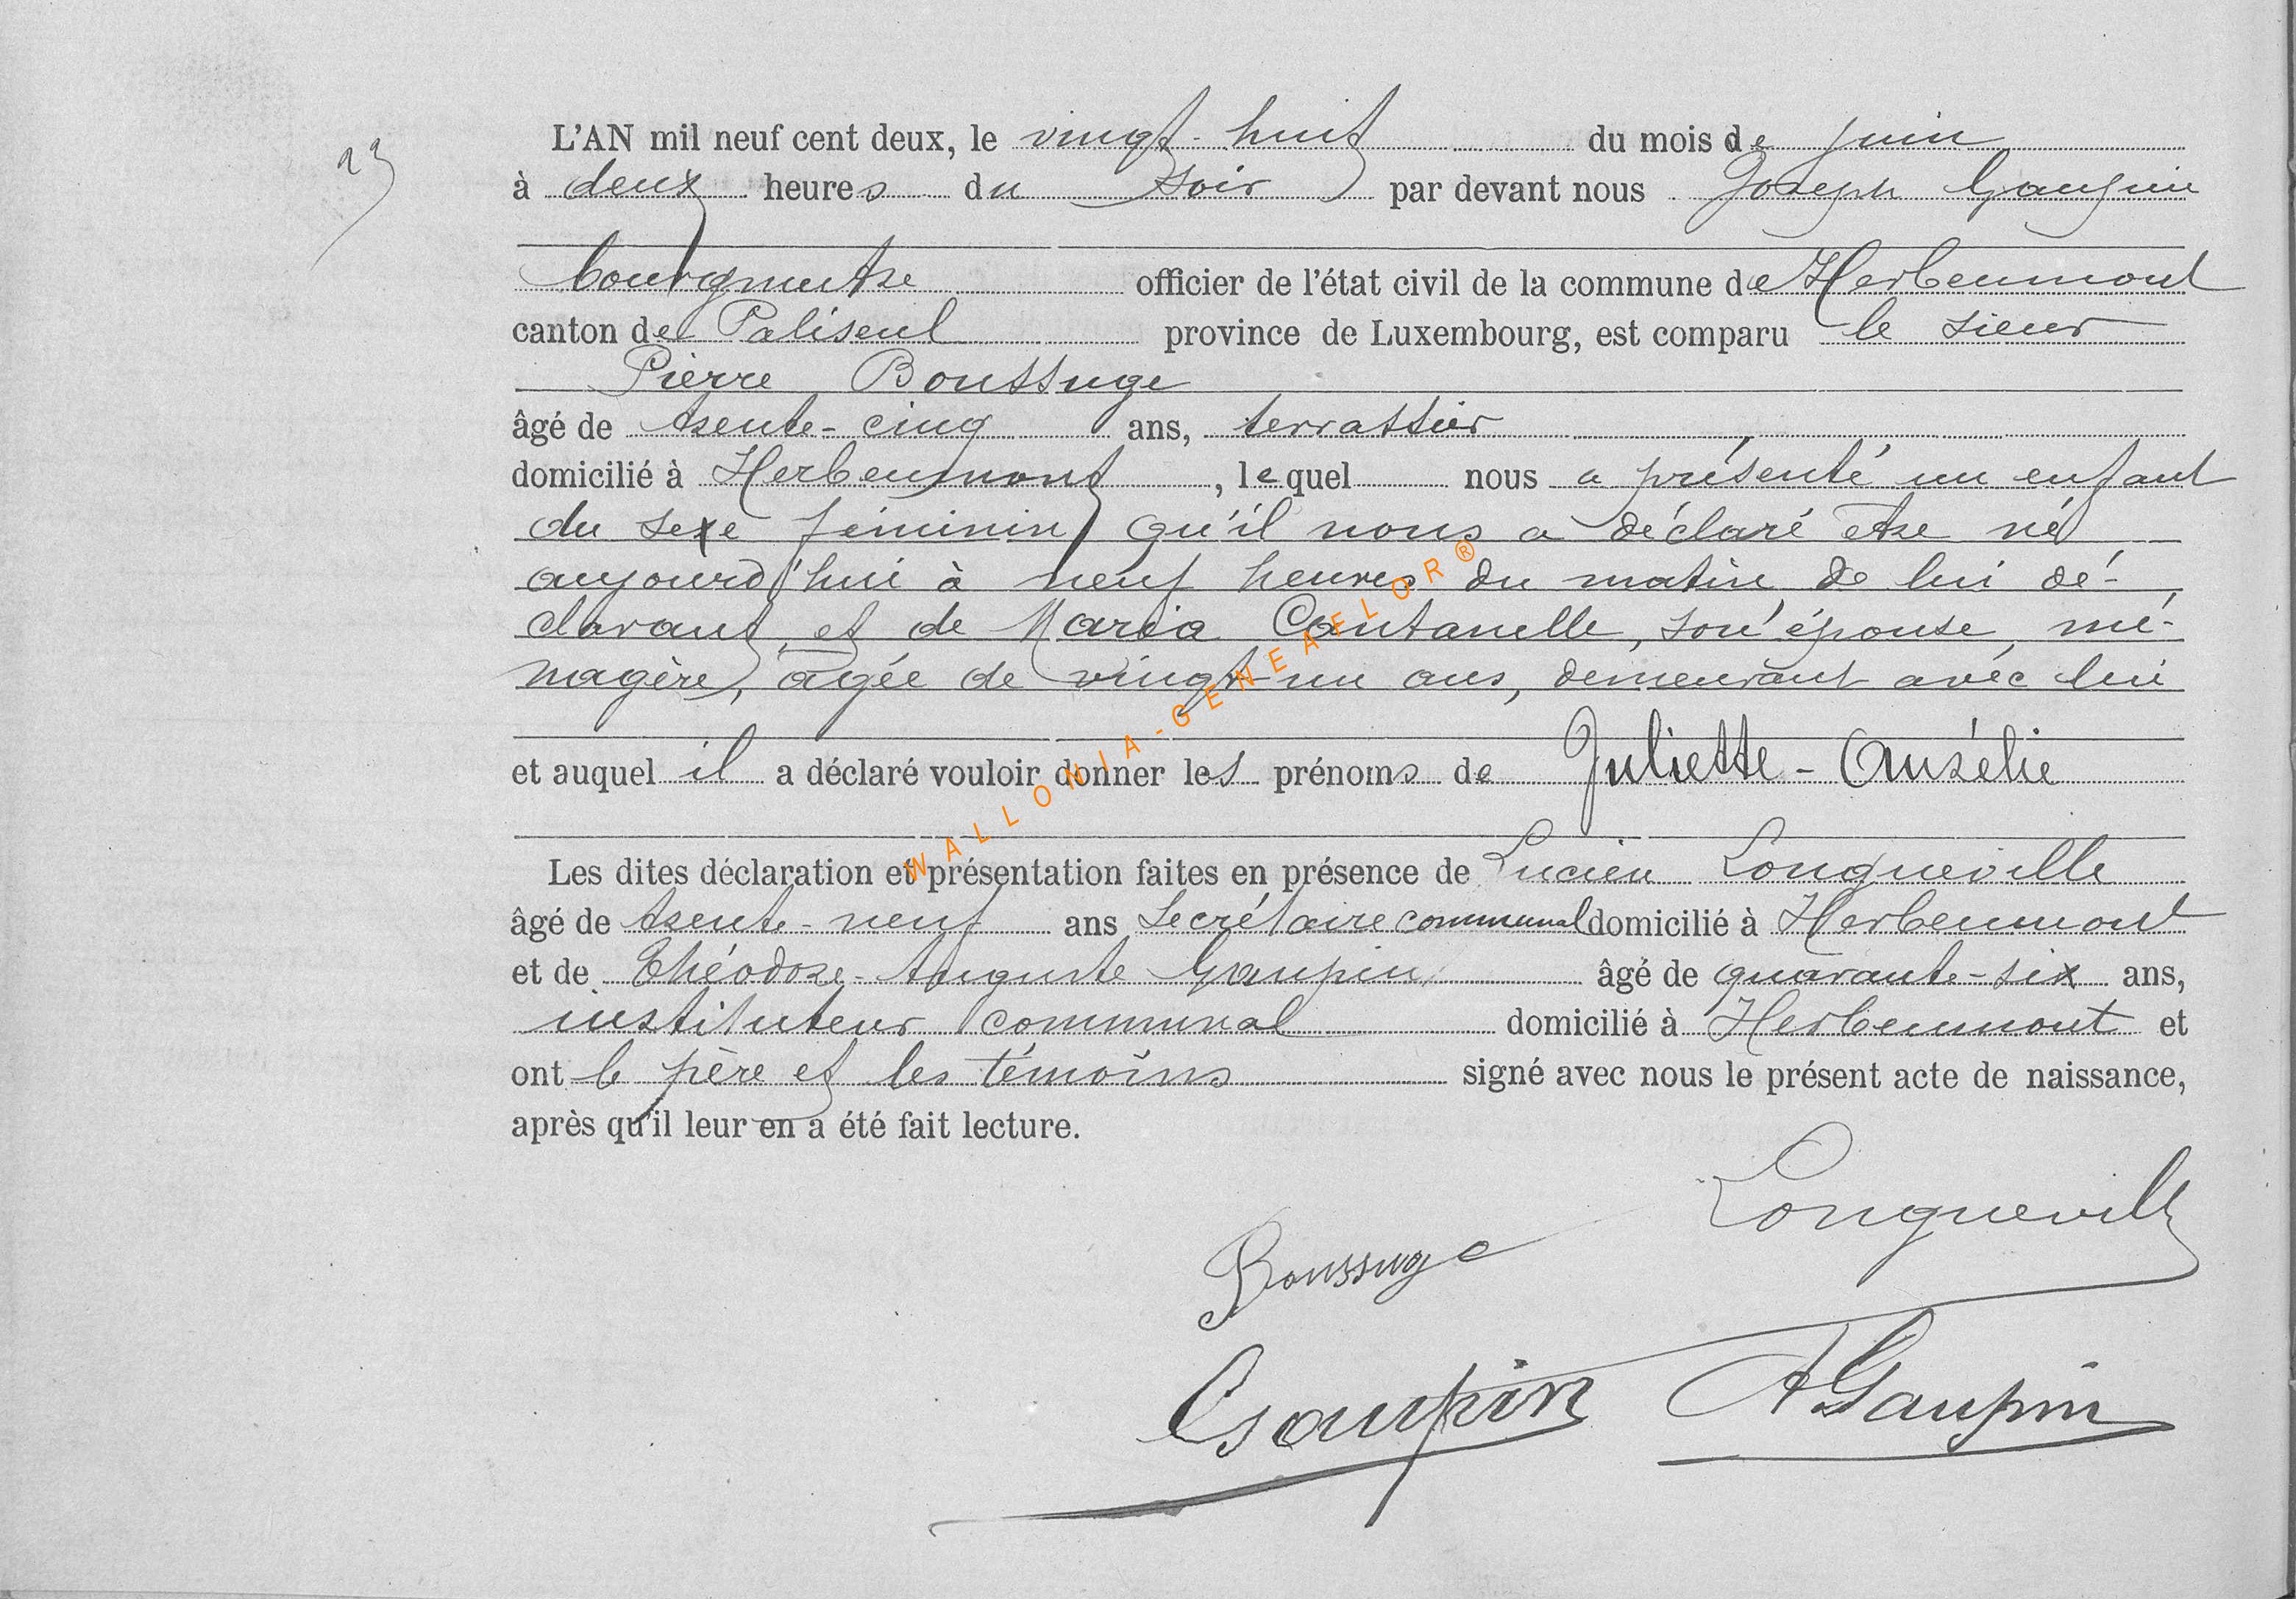 23
L'AN mil neuf cent deux, le vingt-huit du mois de juin
à deux heures du soir par devant nous Joseph Gaupin
bourgmestre officier de l'état civil de la commune de Herbeumont
canton de Paliseul province de Luxembourg, est comparu le sieur
Pierre Boussuge
âgé de trente-cinq ans, terrassier
domicilié à Herbeumont, lequel nous a présenté un enfant
du sexe féminin qu'il nous a déclaré être né
aujourd'hui à neuf heures du matin de lui dé-
clarant, et de Maria Cantanelle, son épouse, mé-
nagère, âgée de vingt-un ans, demeurant avec lui
et auquel il a déclaré vouloir donner les prénoms de Juliette-Aurélie
Les dites déclaration et présentation faites en présence de Lucien Longueville
âgé de trente-neuf ans secrétaire communal domicilié à Herbeumont
et de Théodore-Auguste Gaupin âgé de quarante-six ans,
instituteur communal domicilié à Herbeumont et
ont le père et les témoins signé avec nous le présent acte de naissance,
après qu'il leur en a été fait lecture.
Longueville
Boussuge
Gaupin AGaupin
WALLONIA-GENEAFLOR®